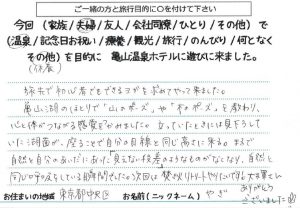 ご一緒の方と旅行目的に〇を付けて下さい
今回（家族／夫婦／友人／会社同僚／ひとり／その他）で
（温泉／記念日お祝い／療養／観光／旅行／のんびり／何となく
その他）を目的に 亀山温泉ホテルに遊びに来ました。
（休養）
旅先で初心者でもできるヨガを求めてやって来ました。
亀山湖のほとりで"山のポーズ"や"木のポーズ"を教わり、
心と体がつながる感覚をつかみました。立っていたときには見下ろして
いた湖面が、座ることで自分の目線と同じ高さに来るのまで
自然と自分のあいだにあった「見えない段差」のようなものがなくなり、自然と
同じ 瞬間でした。次回は焚火リトリートやりたいです
大変
ありがとう
ございました
お住まいの地域 東京都中央区 お名前（ニックネーム） やぎ